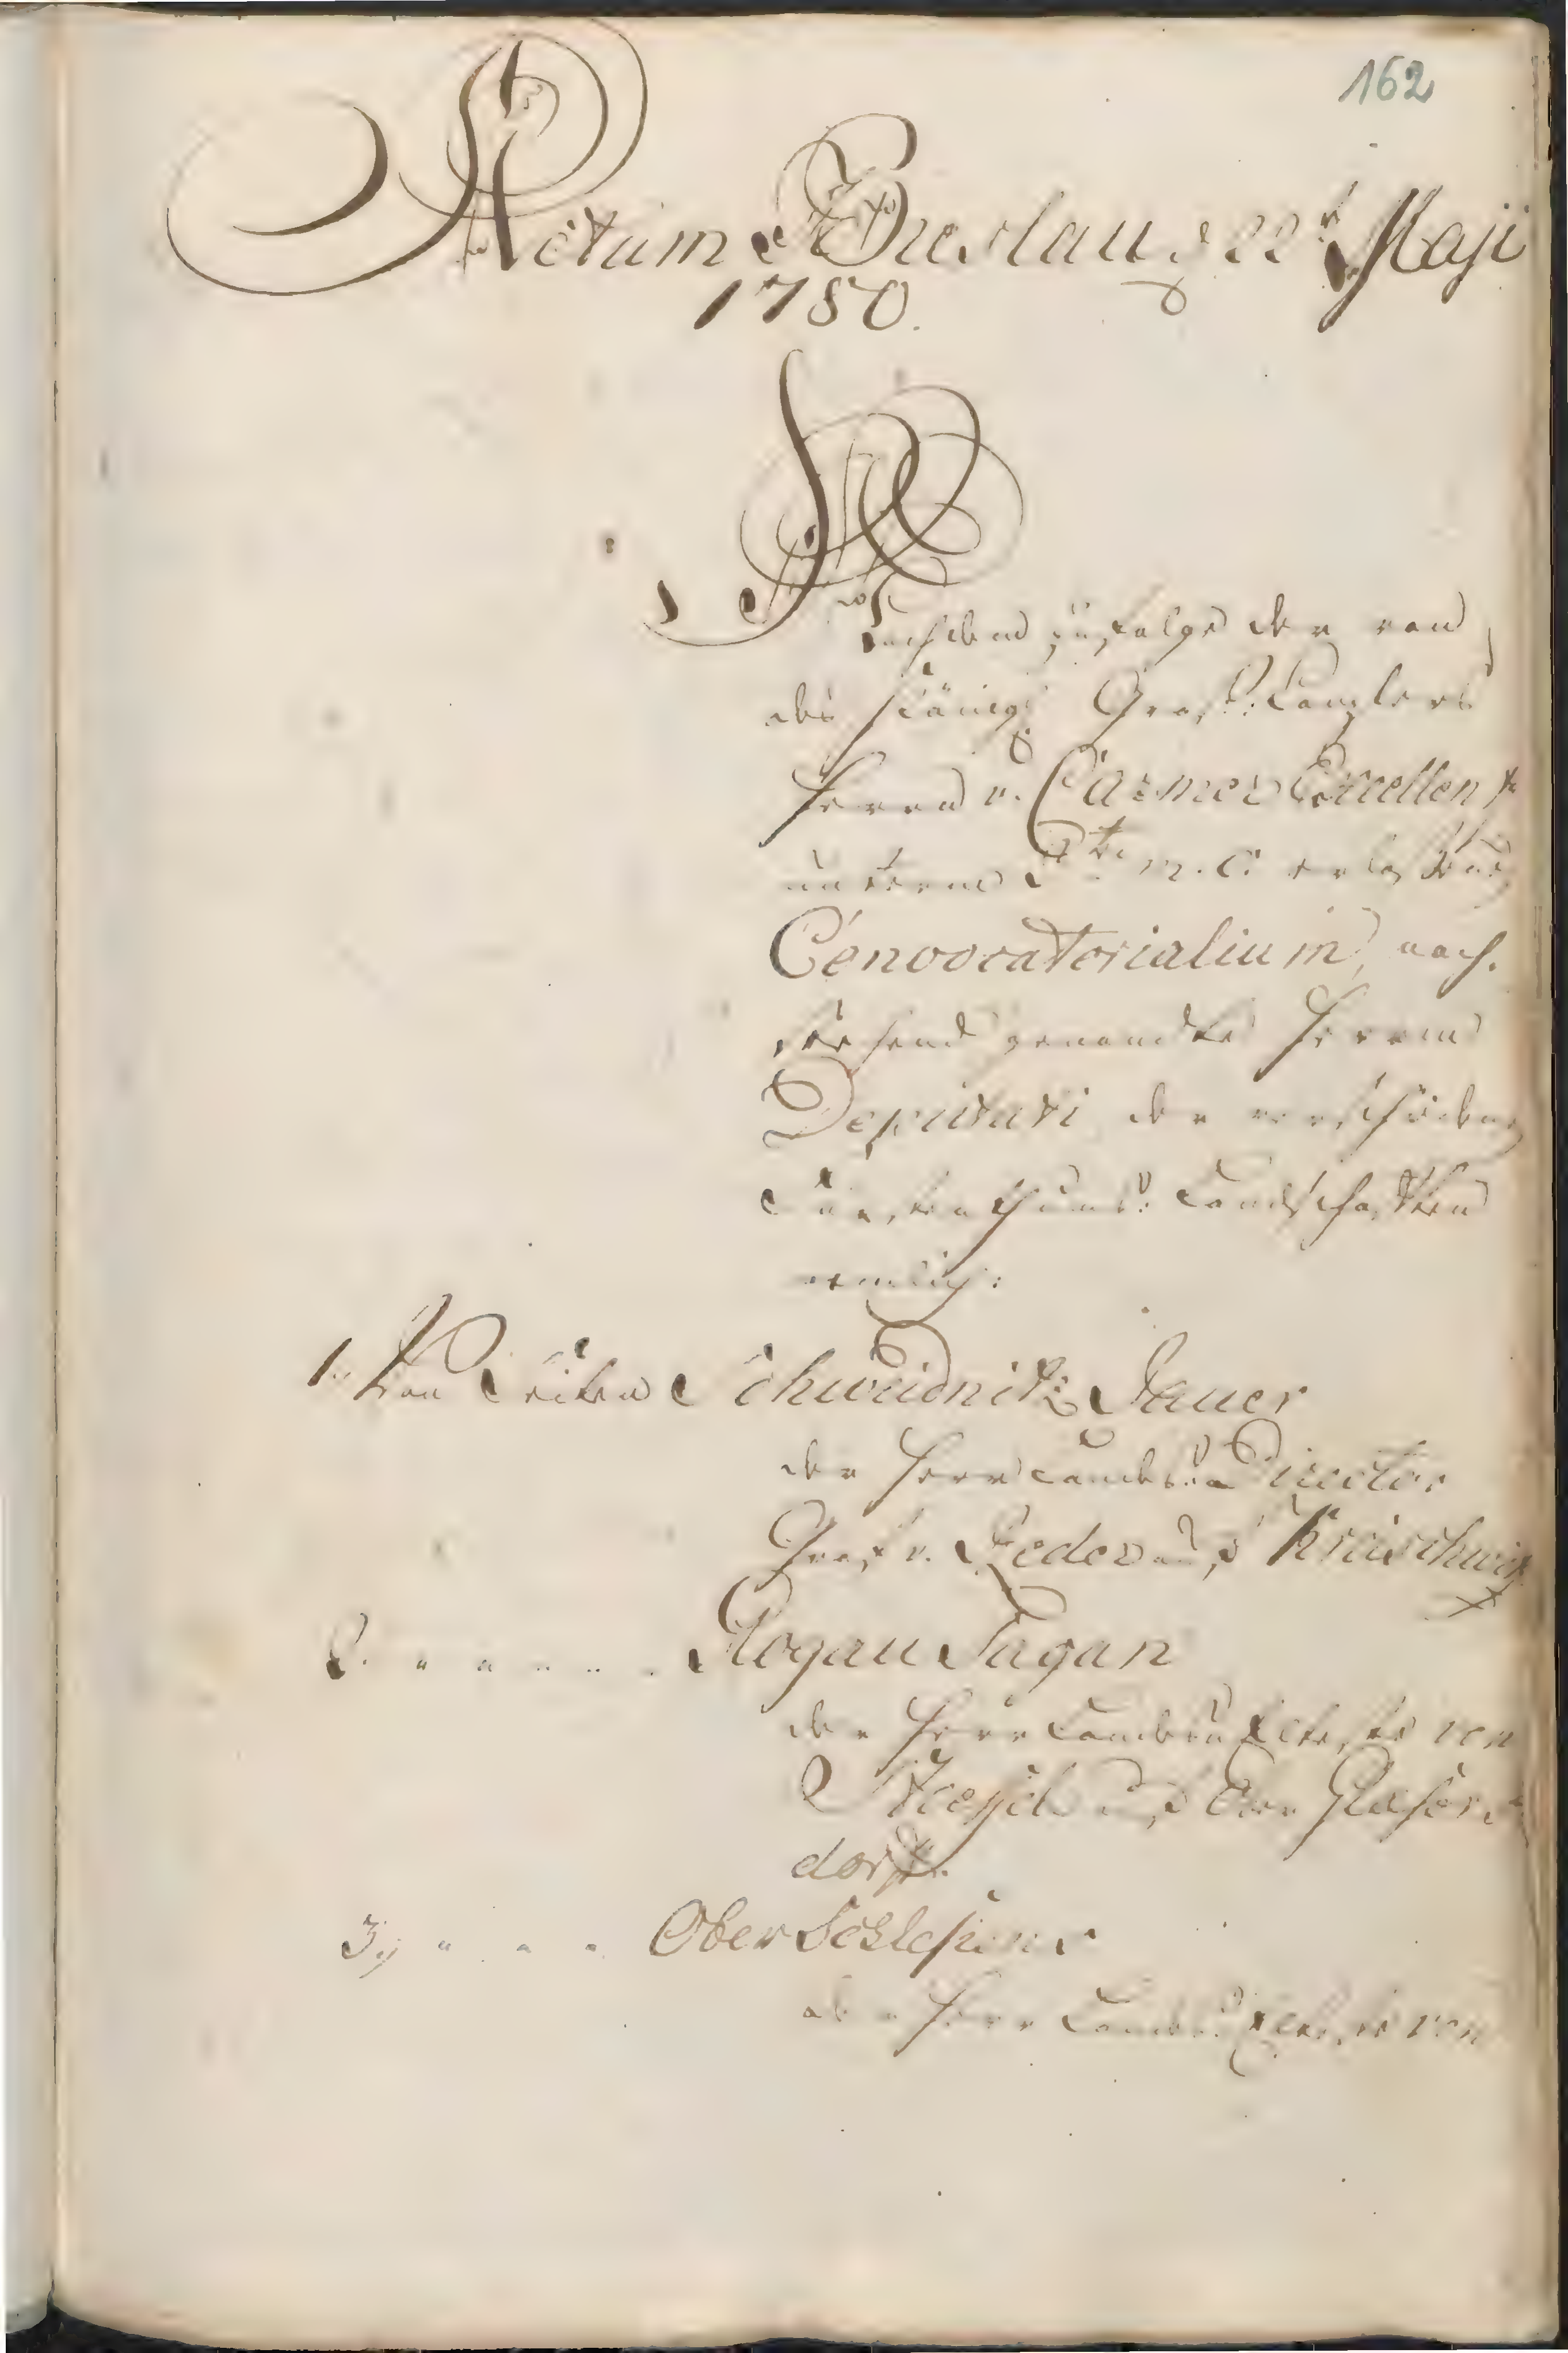 162
Actum Breslau d 22t Maji
1780.
Nachdem zufolge der von
des Königl. Groß-Canzlers
Herrn v. Carmer Excellentz
unterm 5ten m. c. erlaßenen
Convocatorialium, nach-
stehend genandte Herren
Deputati der verschiedenen
Fürstenthums-Landschafften
nemlich:
1. Von Seiten Schweidnitz Jauer
der Herr Landes-Director
Graf v. Zedern auf Kreischwitz
2. " " " " Glogau Sagan
der Herr Landes Aelteste von
auf Ober
dorff.
3, " " " Ober Schlesiens
der Herr Landes Aelteste von